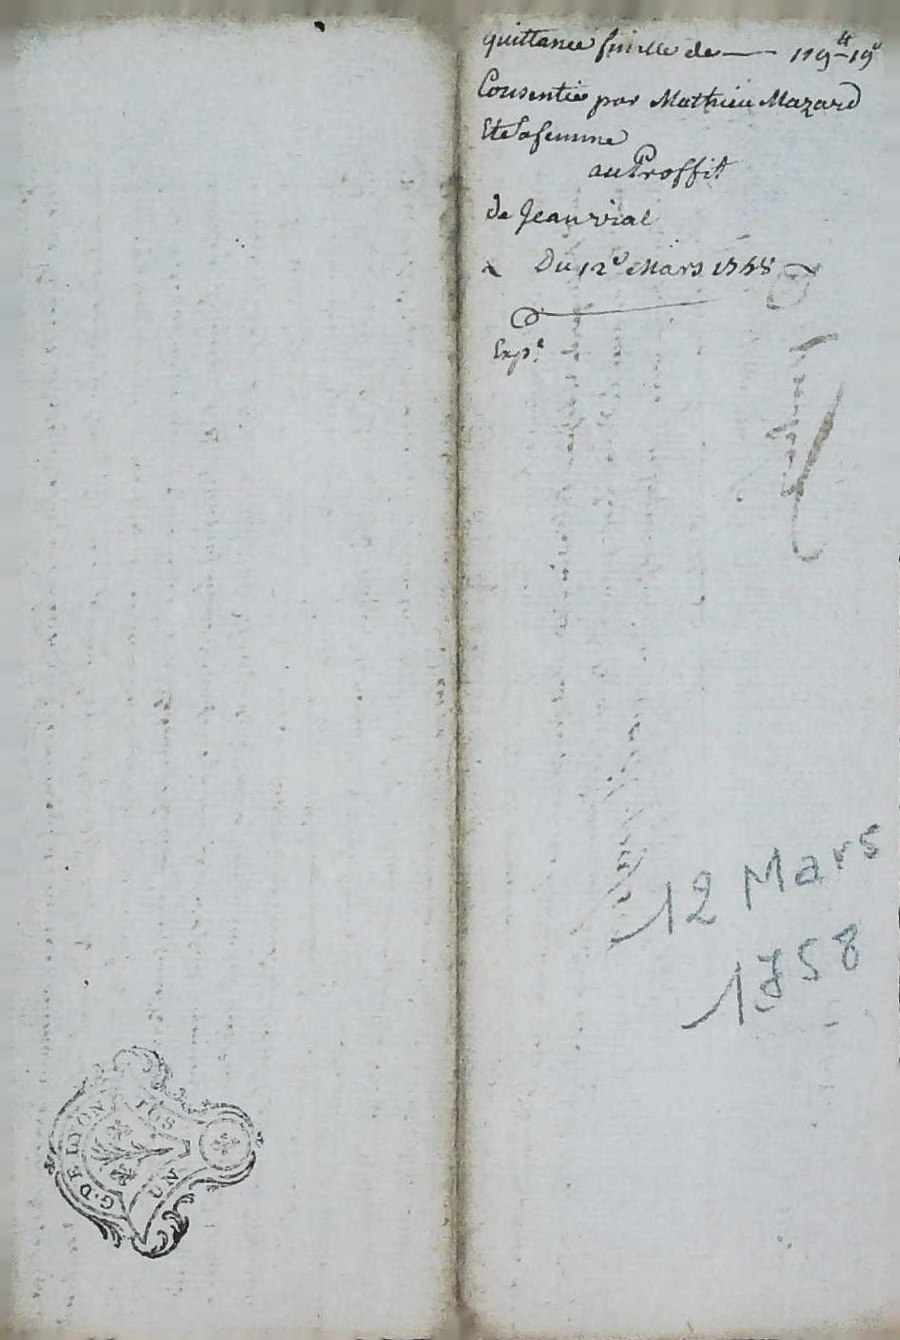 quittance finalle de —— 119ᵗᵗ-19ˢ
Consentie par Mathieu Mazard
Et sa femme
au Proffit
de Jean vial
Du 12ᵉ Mars 1758
Expᵉ.
12 Mars
1758
G. DE LYON